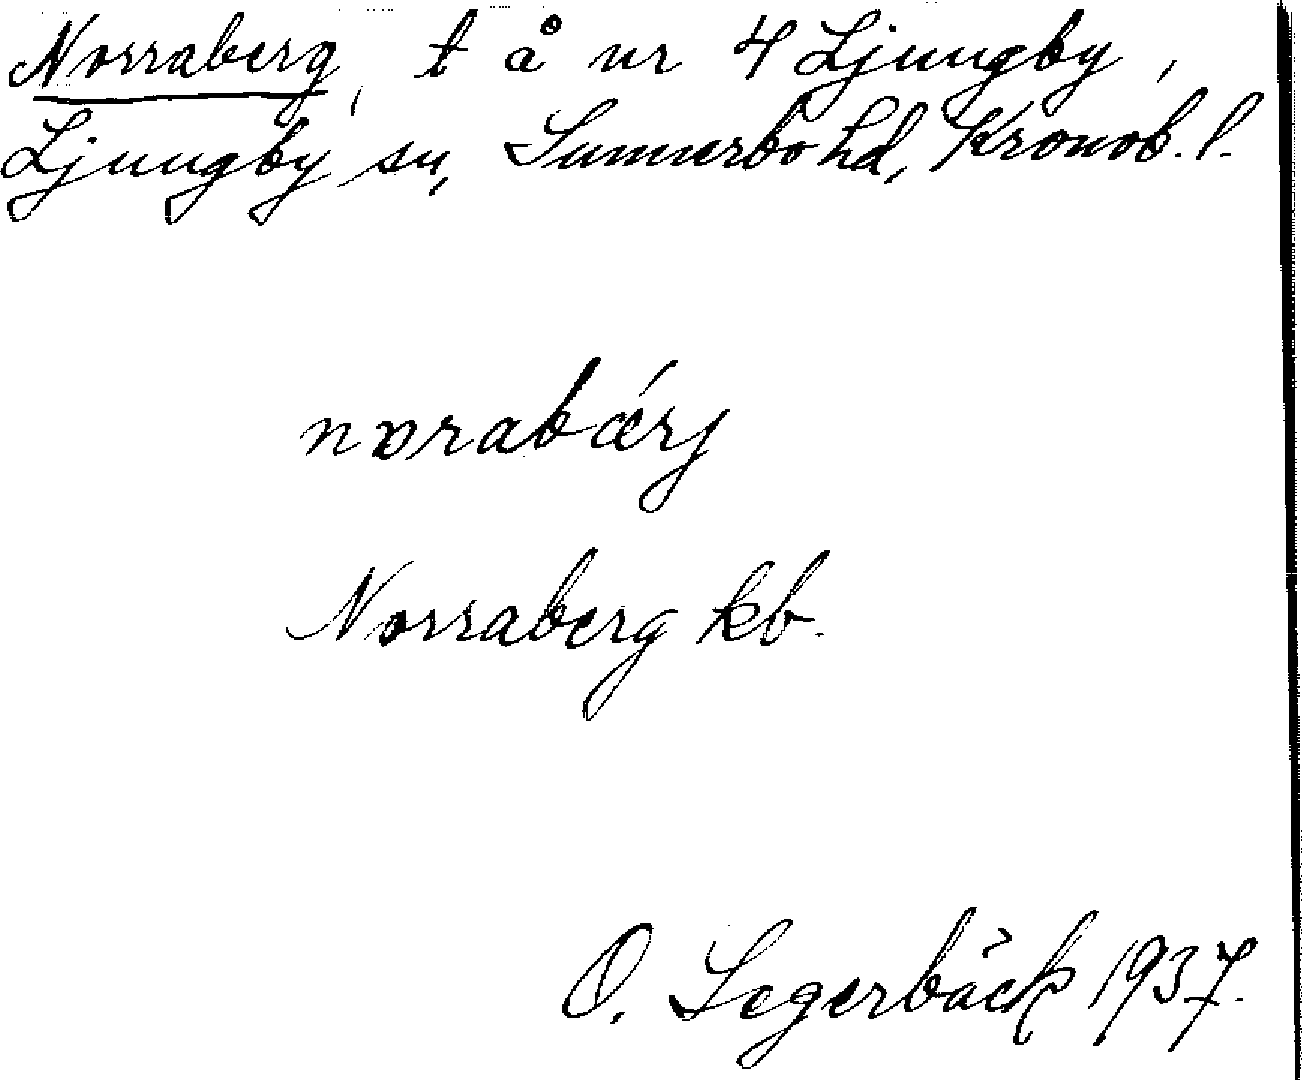 Norraberg, t å nr 4 Ljungby,
Ljungby sn, Sunnerbo hd, Kronob. l.
norabærj
Norraberg kb.
O. Segerbäck 1937.